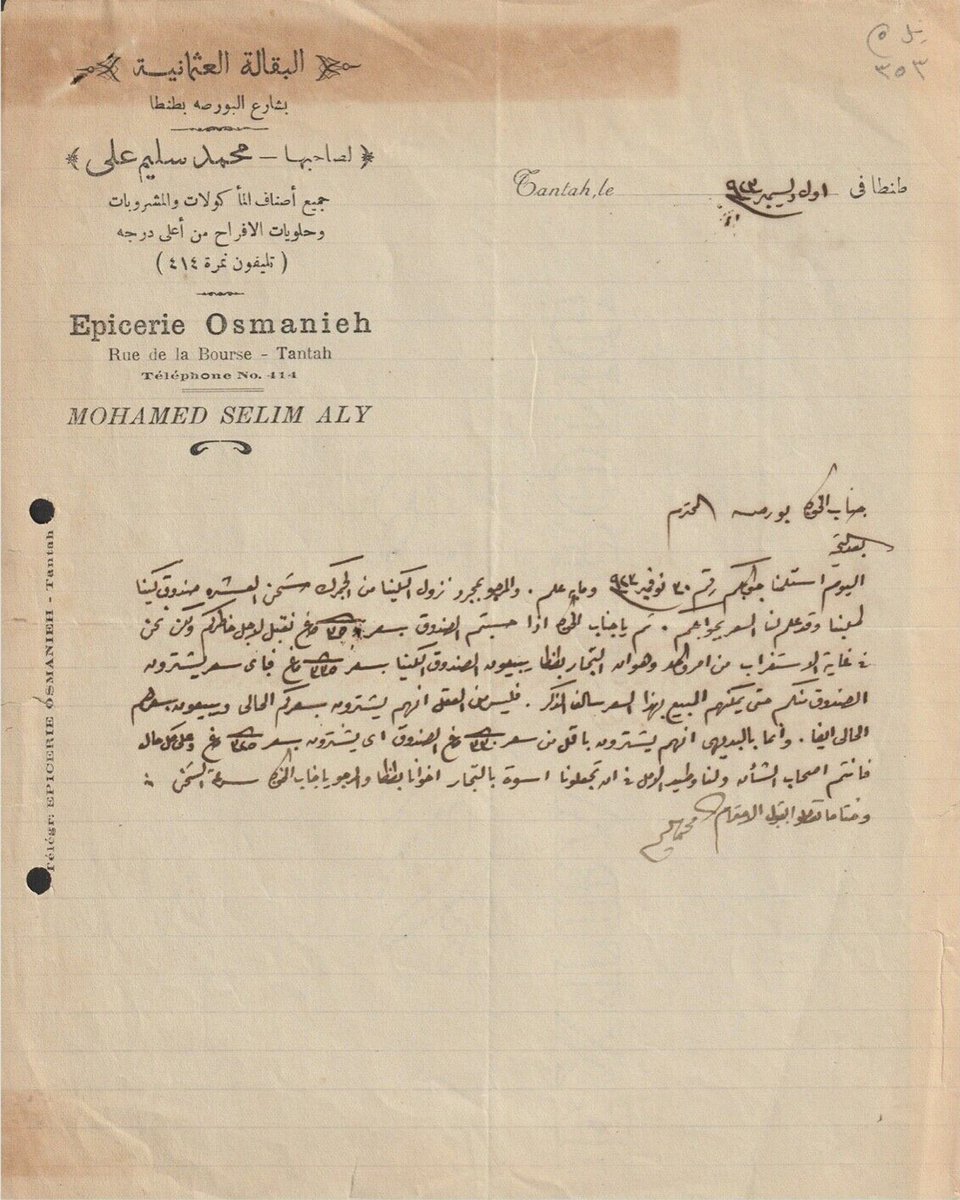 البقالة العثمانية
بشارع البورصه بطنطا
لصاحبها — محمد سليم على
جميع أصناف المأكولات والمشروبات
وحلويات الافراح من أعلى درجه
( تليفون نمرة ٤١٤ )
Epicerie Osmanieh
Rue de la Bourse - Tantah
Téléphone No. 414
MOHAMED SELIM ALY
٣٥٣
Tantah, le
طنطا فى اول ديسمبر ٩٢٣
جناب الخواجه المحترم
بعد التحية
اليوم استلمنا جوابكم رقم ٣٠ نوفمبر ٩٢٣ وما به علم . والمرجو بمجرد نزول الكينا من الجمرك شحن العشره صندوق كينا
لطرفنا وقد علم لنا السعر بجوابكم . ثم ياجناب الخواجه اذا حسبتم الصندوق بسعر نقبل لاجل خاطركم ولكن نحن
فى غاية الاستغراب من امر وهو ان التجار بطنطا يبيعون الصندوق الكينا بسعر فباى سعر يشترون
الصندوق منكم حتى يمكنهم المبيع بهذا السعر سالف الذكر . فليس من العقل انهم يشترون بسعركم الحالى ويبيعون بسعرهم
الحالى ايضا . وانما بالبديهى انهم يشترون باقل من سعر الصندوق اى يشترون بسعر وعلى كل حال
فانتم اصحاب الشأن ولنا وطيد الامل فى ان تجعلونا اسوة بالتجار اخواننا بطنطا والمرجو ياجناب الخواجه سرعة الشحن
وختاما تفضلوا بقبول الاحترام
Télégr: EPICERIE OSMANIEH - Tantah